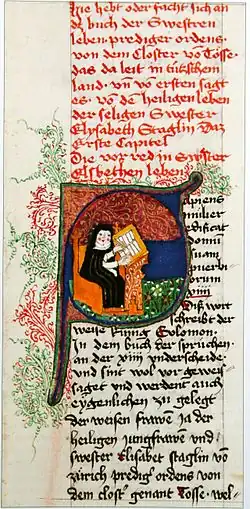 Hie hebt oder facht sich an
dz buch der Swestren
leben prediger ordens
von dem Closter vo Tösse
das da leit in tütschem
land vn vo ersten sagt
es vo dē heiligen leben
der seligen Swester
Elysabeth Staglin Daz
Erste Capitel
Die vor red in Swester
Elsbethen leben
Sapiens
mulier
edificat
domū
suam
puerbi
orum
xiiij
Diß wort
schreibt der
weise kunig Solomon
In dem buch der sprüchen
an der xiiij vnderscheide
vnd sint wol vor geweis
saget vnd werdent auch
eygenlichen zu gelegt
der weisen frawē ja der
heiligen jungfrawe vnd
swester Elisabet staglin vo
zürich predig ordens von
dem closť genant Tösse wel-